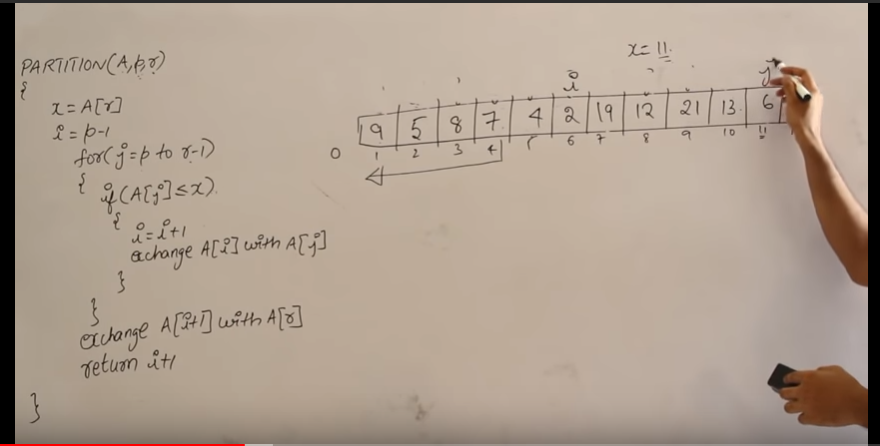 PARTITION(A,p,r)
{
x=A[r]
i=p-1
for(j=p to r-1)
{ if(A[j]≤x)
{ i=i+1
exchange A[i] with A[j]
}
}
exchange A[i+1] with A[r]
return i+1
}
x=11
i j
9 5 8 7 4 2 19 12 21 13 6
0 1 2 3 4 5 6 7 8 9 10 11